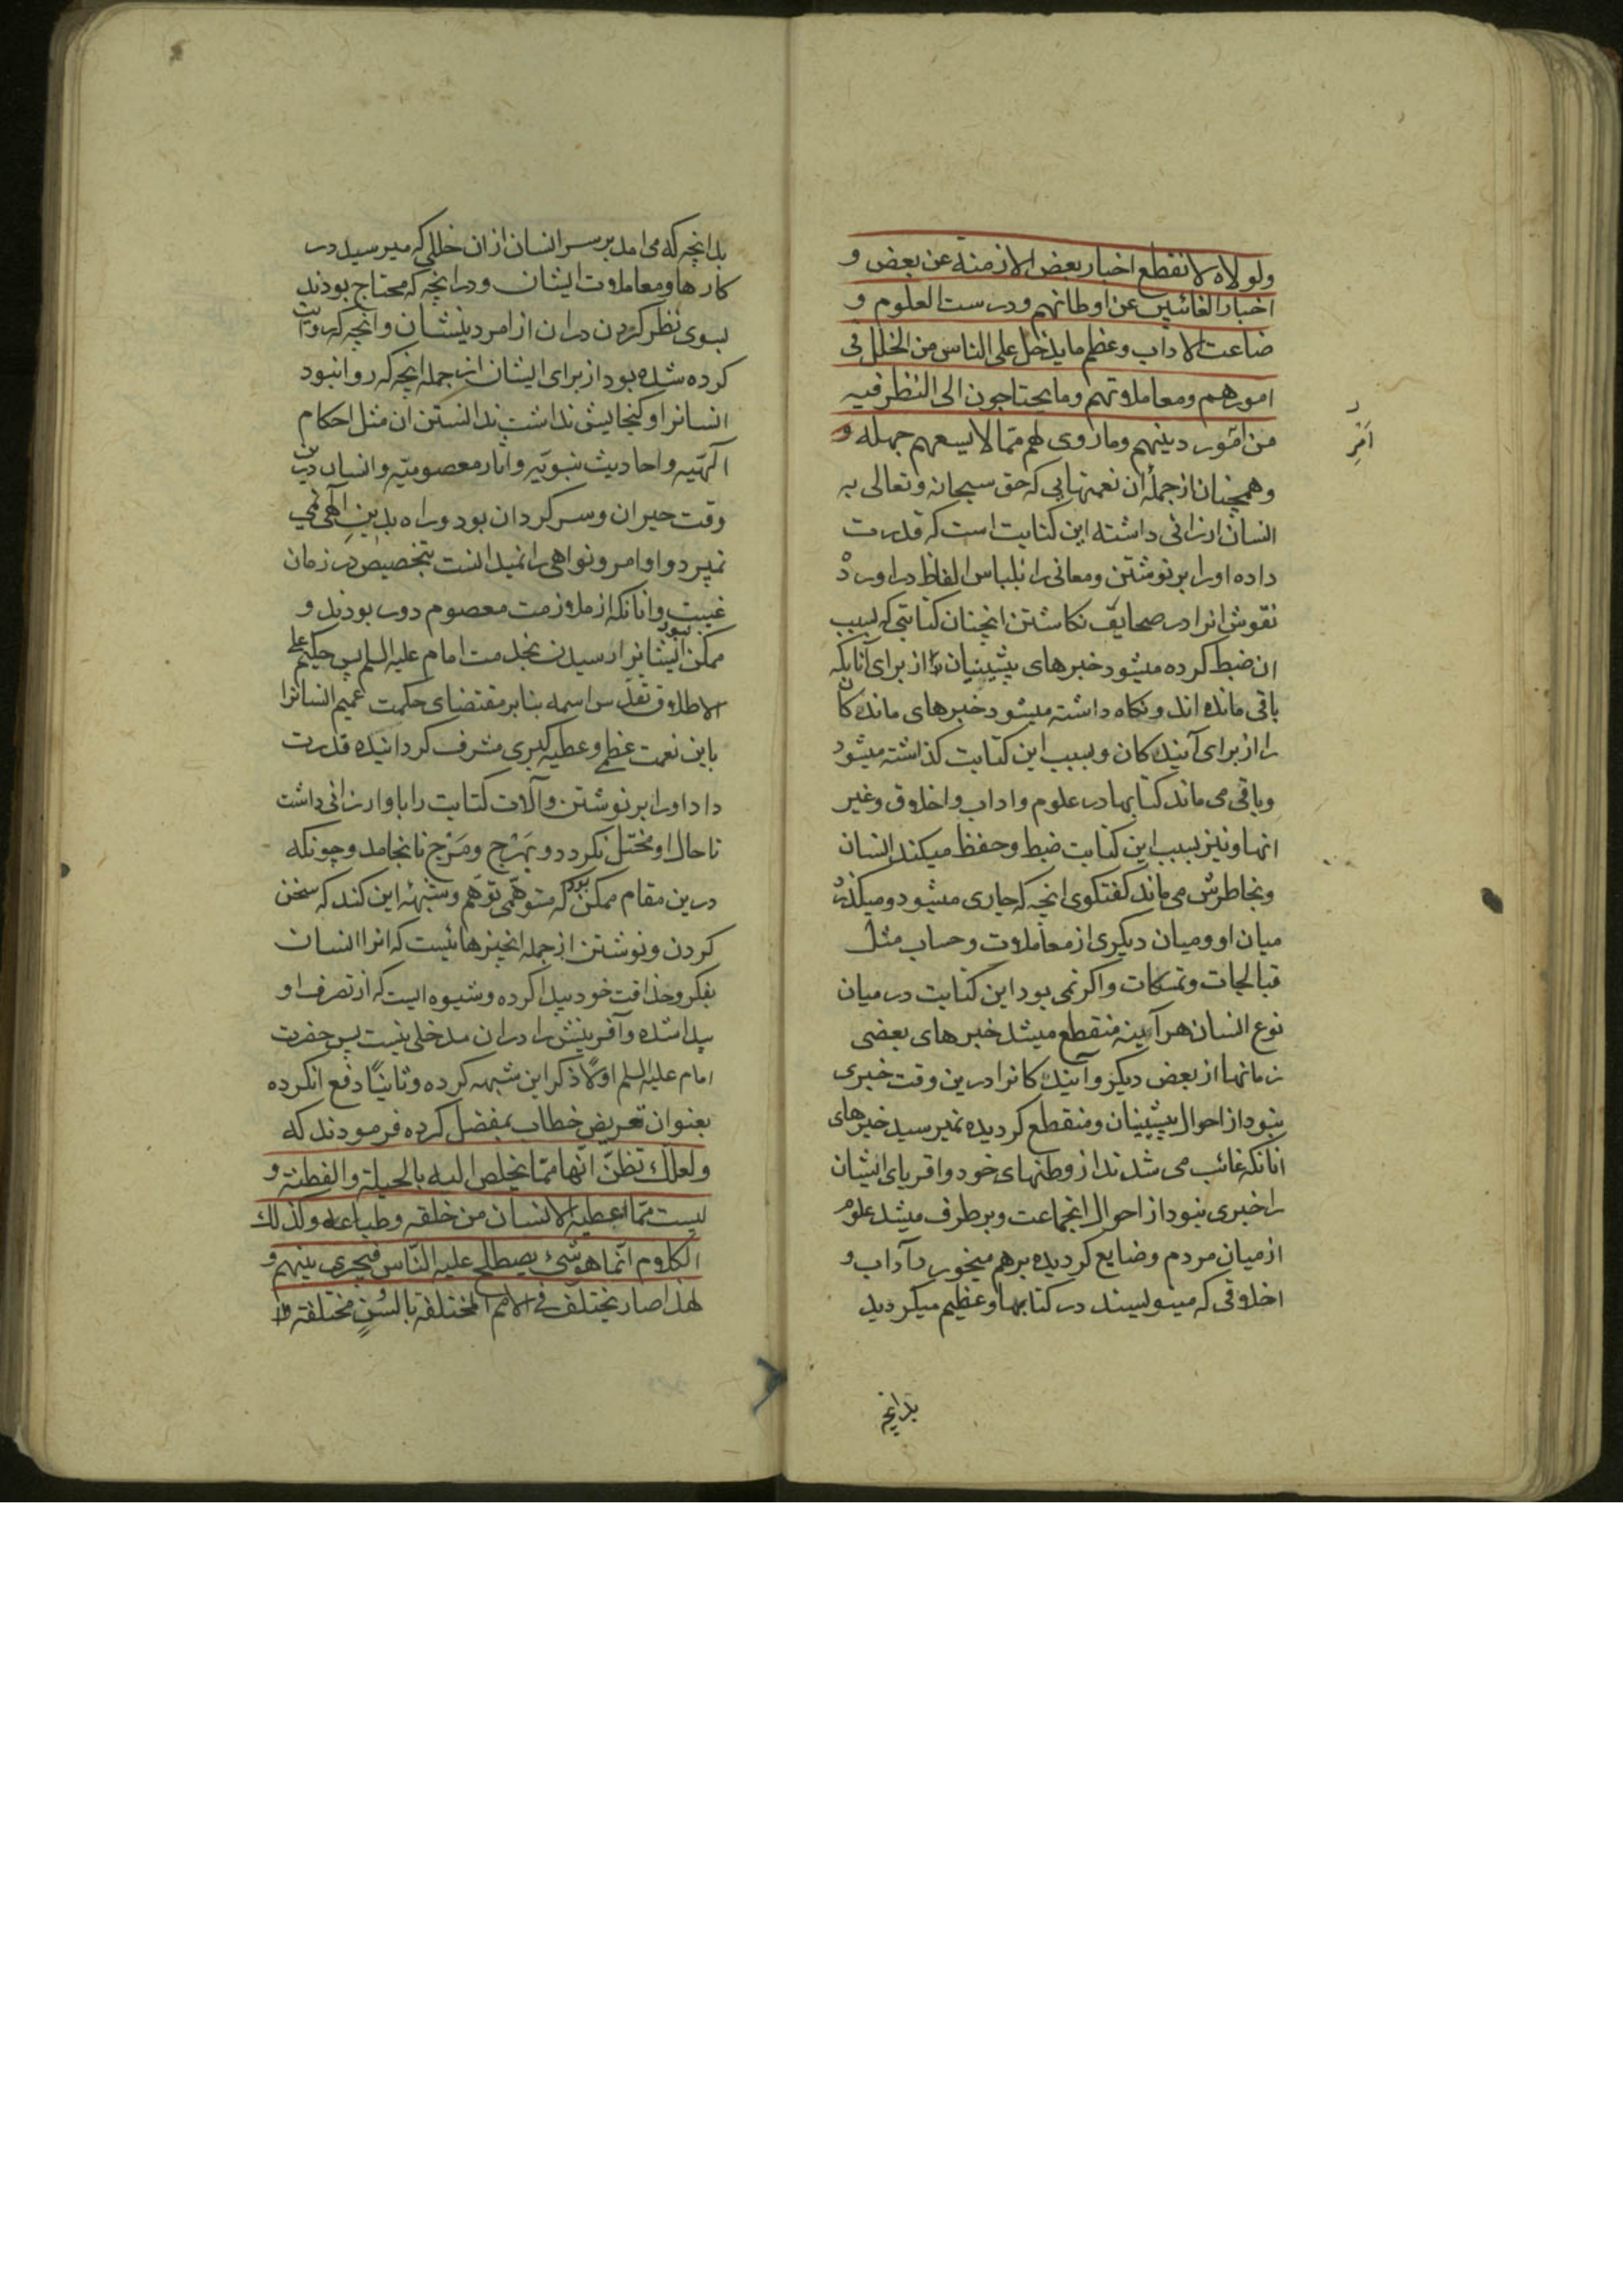 ولولاه لانقطع اخبار بعض الازمنة عن بعض و
اخبار الغائبين عن اوطانهم ودرست العلوم و
ضاعت الاداب وعظم ما يدخل على الناس من الخلل فى
امورهم ومعاملاتهم وما يحتاجون الى النظر فيه
من امور دينهم وما روى لهم ممّا لا يسعهم جهله و
امر
وهمچنان از جملۀ ان نعمتهایی که حق سبحانه وتعالی به
انسان ارزانی داشته این کتابت است که قدرت
داده او را بر نوشتن ومعانی را بلباس الفاظ در اورد
نقوش انرا در صحایف نکاشتن انچنان کتابتی که بسبب
ان ضبط کرده میشود خبرهای پیشینیان از برای آنانکه
باقی مانده اند ونکاه داشته میشود خبرهای ماندکان
را از برای آیندکان وبسبب این کتابت کذاشته میشود
وباقی می ماند کتابها در علوم واداب واخلاق وغیر
انها ونیز بسبب این کتابت ضبط وحفظ میکند انسان
وبخاطرش می ماند کفتکوی انچه که جاری میشود ومیکذرد
میان او ومیان دیکری از معاملات وحساب مثل
قبالجات وتمسکات واکر نمی بود این کتابت در میان
نوع انسان هر آینه منقطع میشد خبرهای بعضی
زمانها از بعض دیکر وآیندکانرا درین وقت خبری
نبود از احوال پیشینیان ومنقطع کردیده نمیرسید خبرهای
انانکه غائب می شدند از وطنهای خود واقربای ایشان
را خبری نبود از احوال انجماعت وبر طرف میشد علوم
از میان مردم وضایع کردیده برهم میخورد آداب و
اخلاقی که مینویسند در کتابها وعظیم میکردید
بدانچه
بدانچه که می امد بر سر انسان از ان خللی که میرسید در
کارها ومعاملات ایشان ودر انچه که محتاج بودند
بسوی نظر کردن در ان از امر دینشان وانچه که روایت
کرده شده بود از برای ایشان از جمله انچه که روا نبود
انسانرا وکنجایش نداشت ندانستن ان مثل احکام
آلهیّه واحادیث نبویّه واثار معصومیّه وانسان درین
وقت حیران وسرکردان بود وراه بدین آلهی نمی
نمیبرد واوامر ونواهی را نمیدانست بتخصیص در زمان
غیبت وانانکه از ملازمت معصوم دور بودند و
ممکن نبود ایشانرا رسیدن بخدمت امام علیه السلم پس حکیم علی
الاطلاق تقدس اسمه بنابر مقتضای حکمت عمیم انسانرا
باین نعمت عظمی وعطیه کبری مشرف کردانیده قدرت
داد او را بر نوشتن وآلات کتابت را باو ارزانی داشت
تا حال او مختل نکردد وبهَرْج ومَرْج نانجامد وچونکه
درین مقام ممکن بود که متوهّمی توهّم وشبهۀ این کند که سخن
کردن ونوشتن از جمله انچیزها نیست که انرا انسان
بفکر وحذاقت خود پیدا کرده وشیوه ایست که از تصرف او
پیدا شده وآفرینش را در ان مدخلی نیست پس حضرت
امام علیه السلم اولًا ذکر این شبهه کرده وثانیًا دفع انکرده
بعنوان تعریض خطاب بمفضل کرده فرمودند که
ولعلك تظنّ انّها ممّا يخلص اليه بالحيلة والفطنة و
ليست ممّا اعطيه الانسان من خلقه وطباعه وكذلك
الكلام انّما هو شئ يصطلح عليه النّاس فيجرى بينهم و
لهذا صار يختلف فى الامم المختلفة بالسُنٍ مختلفة